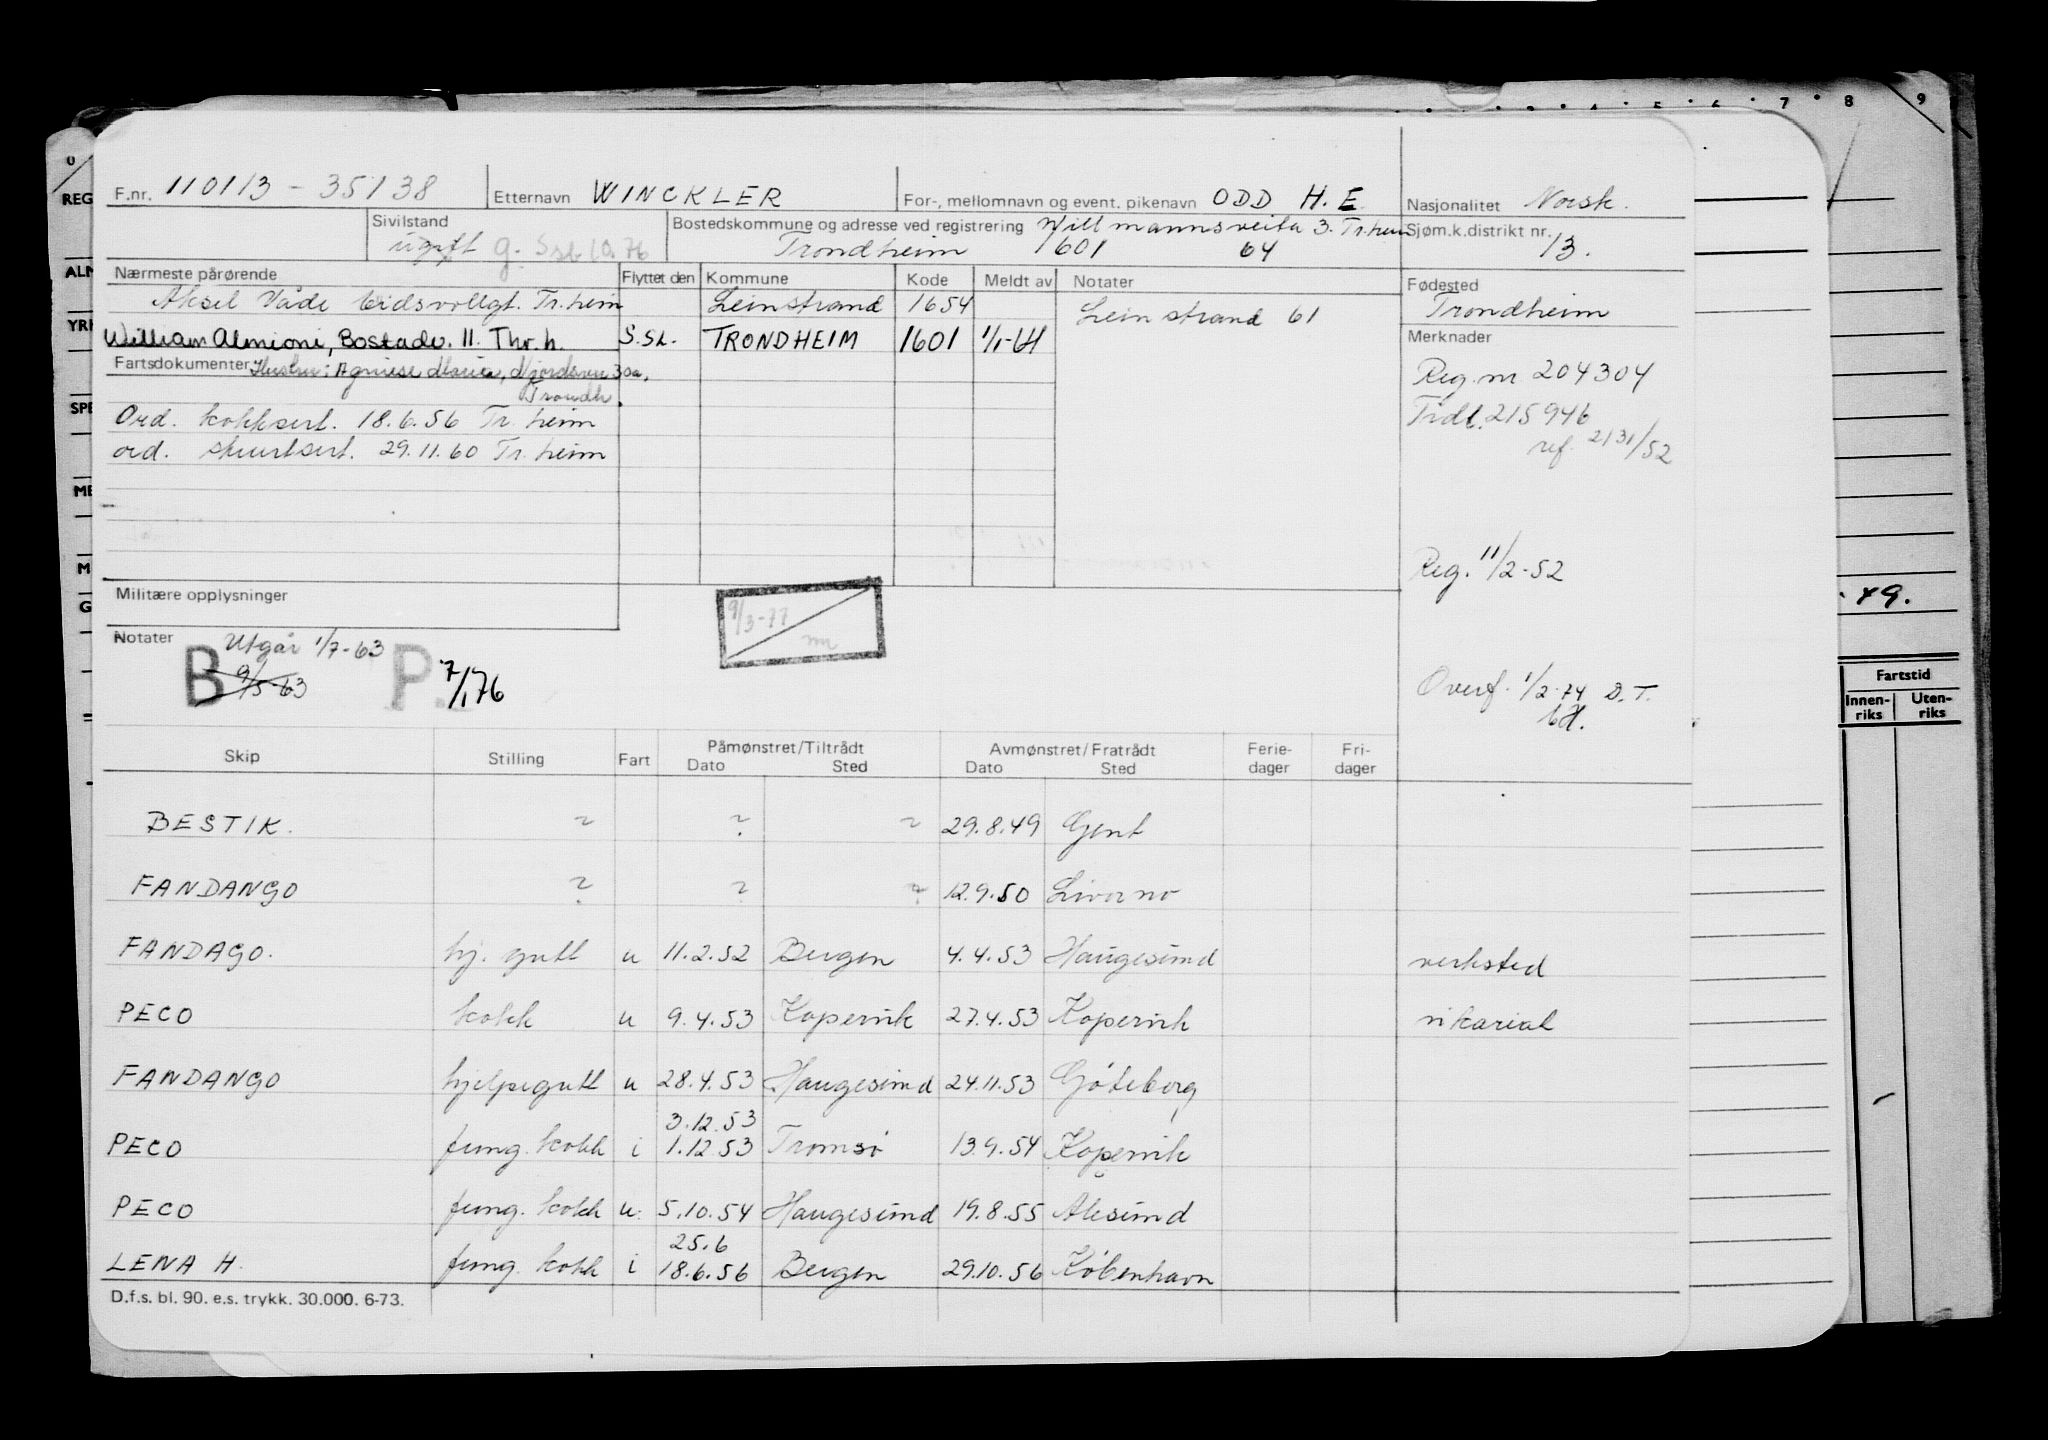 F.nr. 110113 - 35138 Etternavn WINCKLER For-, mellomnavn og event. pikenavn ODD H. E. Nasjonalitet Norsk.
Sivilstand ugift g. Bostedskommune og adresse ved registrering Willmannsveita 3. Tr.heim Sjøm.k.distrikt nr. 13.
Trondheim 1601 64
Nærmeste pårørende Flyttet den Kommune Kode Meldt av Notater Fødested
Aksel Våde Eidsvollgt. Tr.heim Leinstrand 1654 Leinstrand 61 Trondheim
William Almioni, Bostadv. 11. Thr.h. S.St. TRONDHEIM 1601 1/1-64 Merknader
Fartsdokumenter Hustru: Agniese Maria, 30a,
Trondh.
Reg.nr 204304
Ord. kokksert. 18.6.56 Tr.heim Tidl. 215946
ord. stuertsert. 29.11.60 Tr.heim ref. 2131/52
Reg. 11/2-52
Militære opplysninger
9/3-77
Notater Utgår 1/7-63
B 9/5-63 P. 7/1 76
Overf. 1/2-74 D.T.
Skip Stilling Fart Påmønstret/Tiltrådt Dato Sted Avmønstret/Fratrådt Dato Sted Ferie-dager Fri-dager
BESTIK. ? ? ? 29.8.49 Gent
FANDANGO ? ? ? 12.9.50 Livorno
FANDAGO. hj. gutt u 11.2.52 Bergen 4.4.53 Haugesund verksted
PECO kokk u 9.4.53 Kopervik 27.4.53 Kopervik vikariat
FANDANGO hjelpegutt u 28.4.53 Haugesund 24.11.53 Göteborg
3.12.53
PECO fung. kokk i 1.12.53 Tromsø 13.9.54 Kopervik
PECO fung. kokk u. 5.10.54 Haugesund 19.8.55 Alesund
25.6
LENA H. fung. kokk i 18.6.56 Bergen 29.10.56 København
D.f.s. bl. 90. e.s. trykk. 30.000. 6-73.
0
REG
ALM
YRK
SPE
ME
M
G
7 8 9
49.
Fartstid
Innen-riks Uten-riks